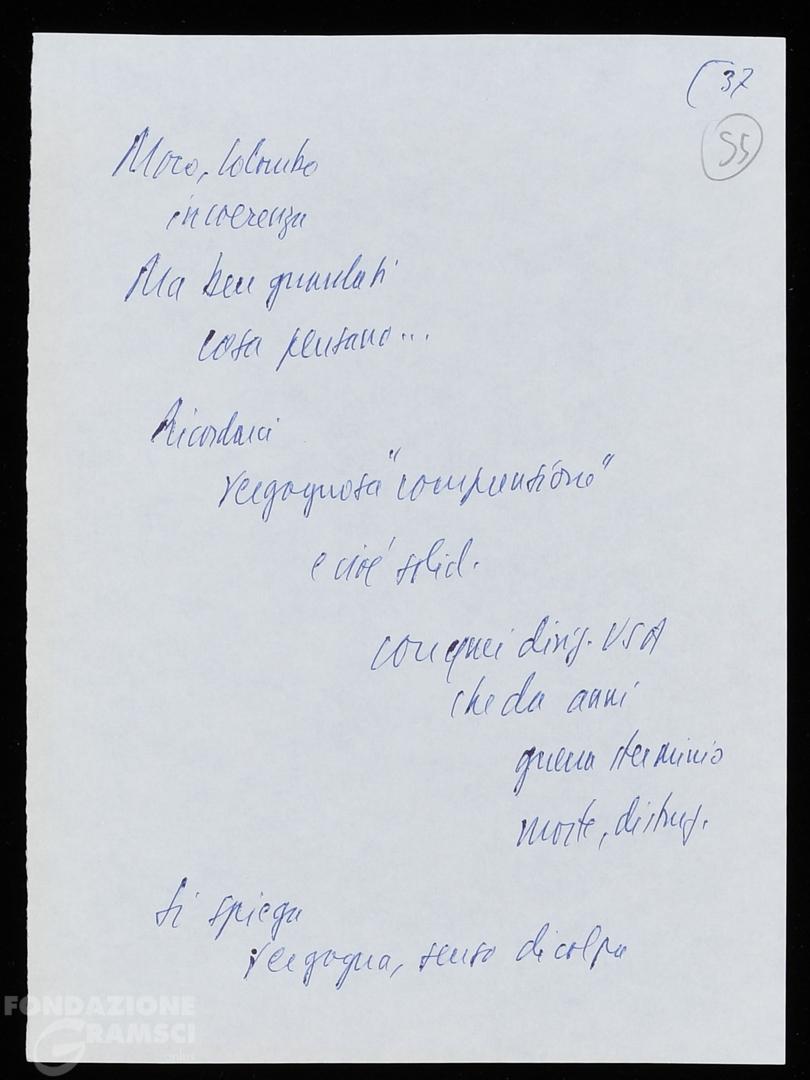 (37
55
Moro, Colombo
incoerenza
Ma ben guardati
cosa pensano...
Ricordarci
vergognosa "comprensione"
e cioè solid.
con quei dirig. USA
che da anni
guerra sterminio
morte, distruz.
Si spiega
vergogna, senso di colpa
FONDAZIONE
GRAMSCI